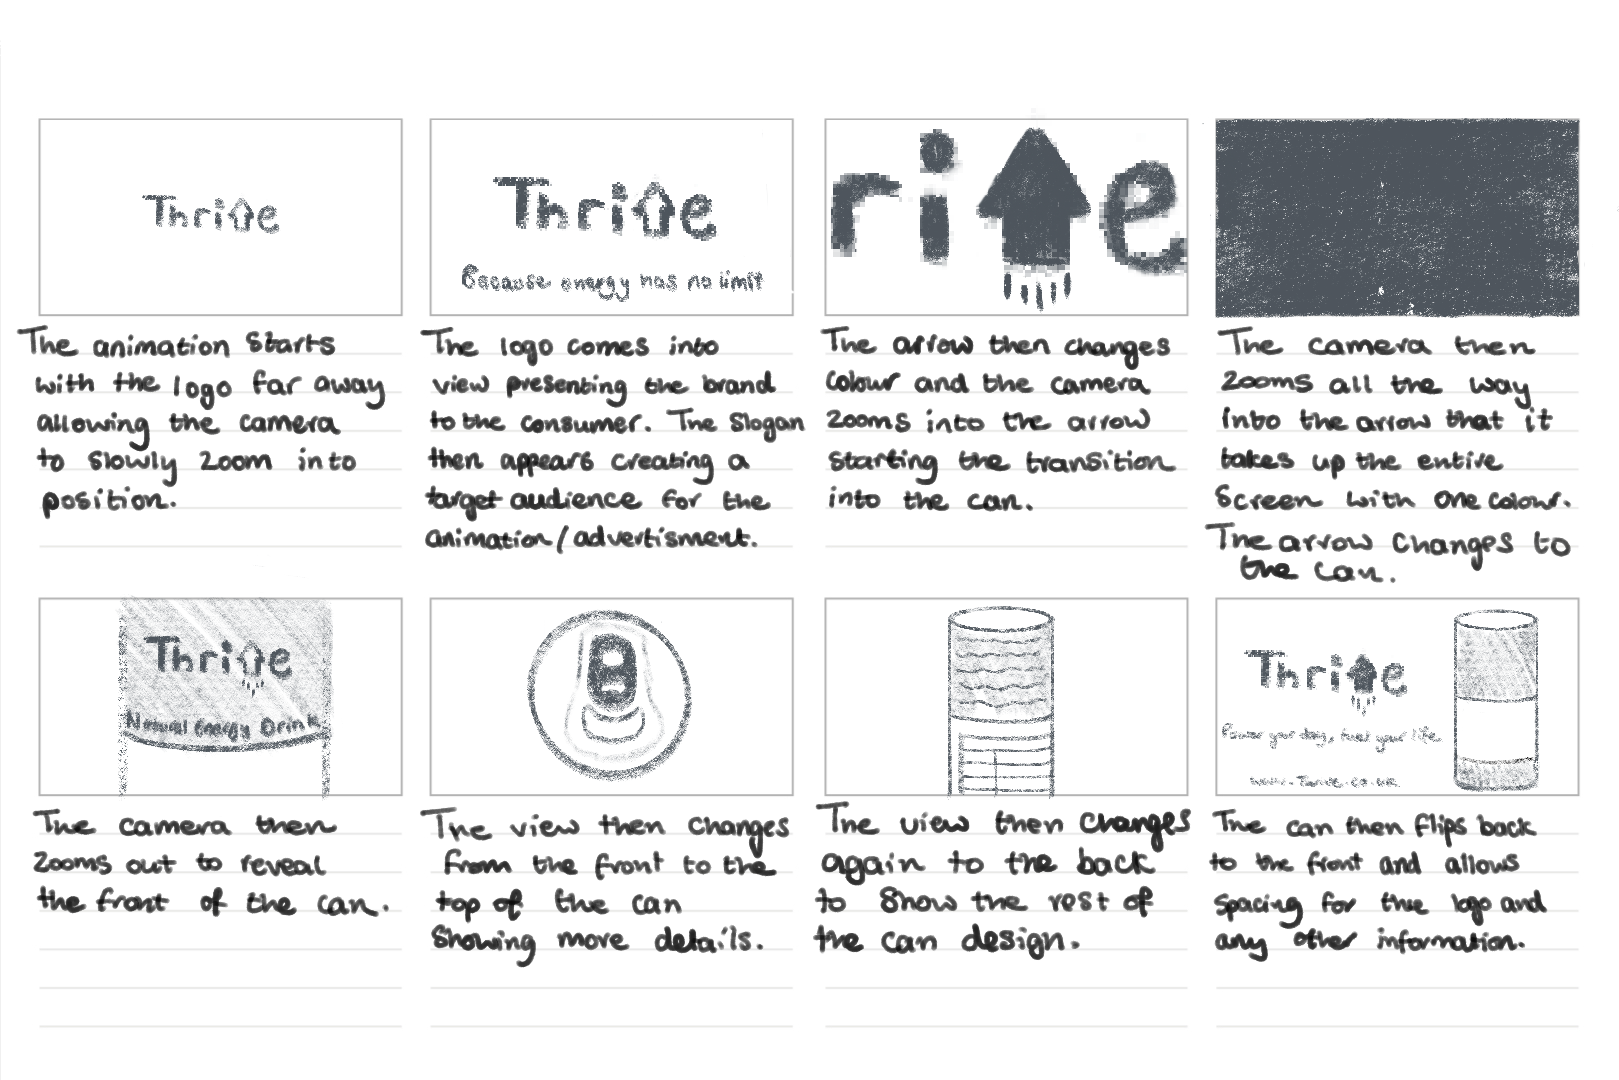 Thrive
The animation starts
with the logo far away
allowing the camera
to slowly zoom into
position.
Thrive
Because energy has no limit
The logo comes into
view presenting the brand
to the consumer. The slogan
then appears creating a
target audience for the
animation/advertisment.
ri e
The arrow then changes
colour and the camera
zooms into the arrow
starting the transition
into the can.
The camera then
zooms all the way
into the arrow that it
takes up the entire
screen with one colour.
The arrow changes to
the can.
Thrive
Natural Energy Drink
The camera then
zooms out to reveal
the front of the can.
The view then changes
from the front to the
top of the can
showing more details.
The view then changes
again to the back
to show the rest of
the can design.
Thrive
Power your day, fuel your life.
The can then flips back
to the front and allows
spacing for the logo and
any other information.